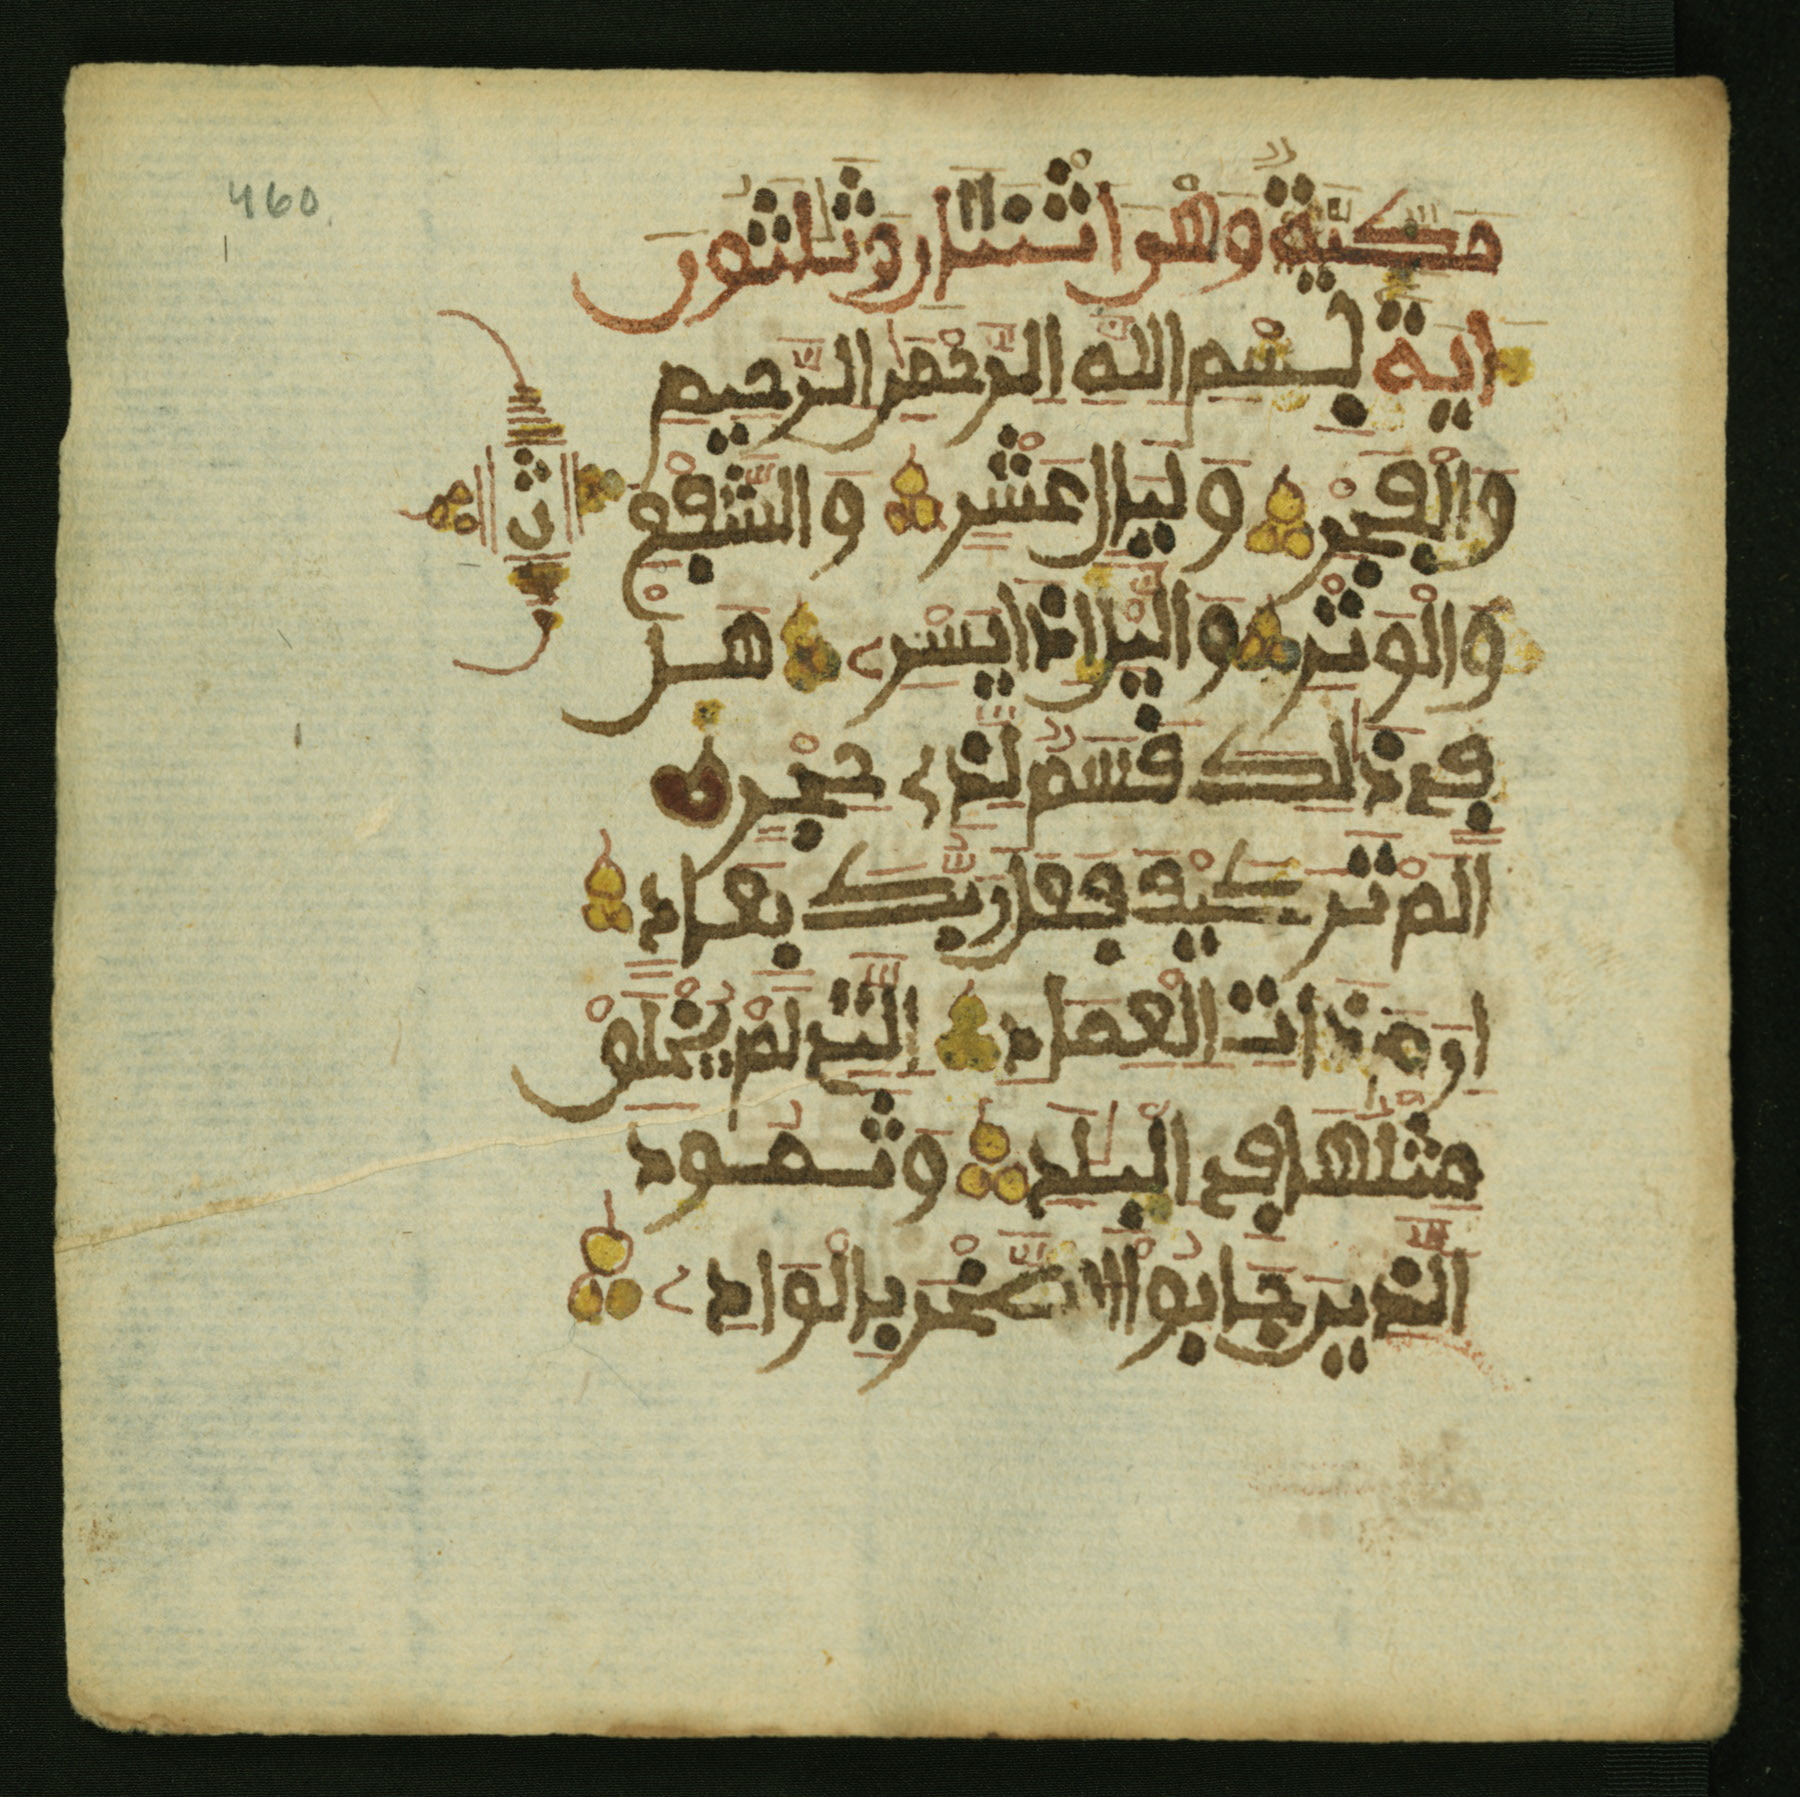 460
مكية وهو اثنتان وثلثون
اية بسم الله الرحمن الرحيم
والفجر وليال عشر والشفع
والوتر واليل اذا يسر هل
في ذلك قسم لذي حجر
الم تر كيف فعل ربك بعاد
ارم ذات العماد التي لم يخلق
مثلها في البلد وثمود
الذين جابوا الصخر بالواد